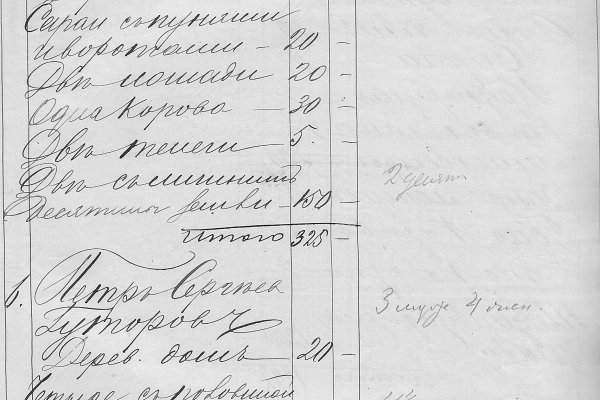 Сараи съ пунями
и воротами – 20 –
Двѣ лошади 20 –
Одна Корова – 30 –
Двѣ телеги 5. –
Двѣ съ
Десятины земли – 150 – 2 десят
Итого 325 –
6. Петръ Сергѣев
Гуторовъ 3 муж 4 жен.
Дерев. домъ – 20 –